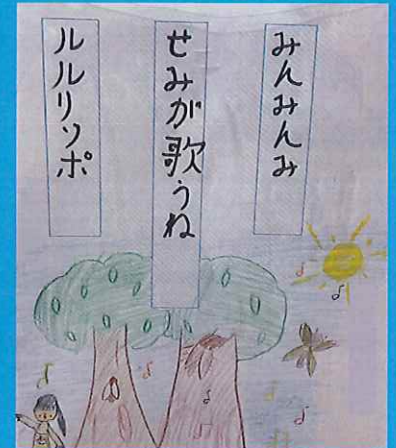 みんみんみ
せみが歌うね
ルルリソポ